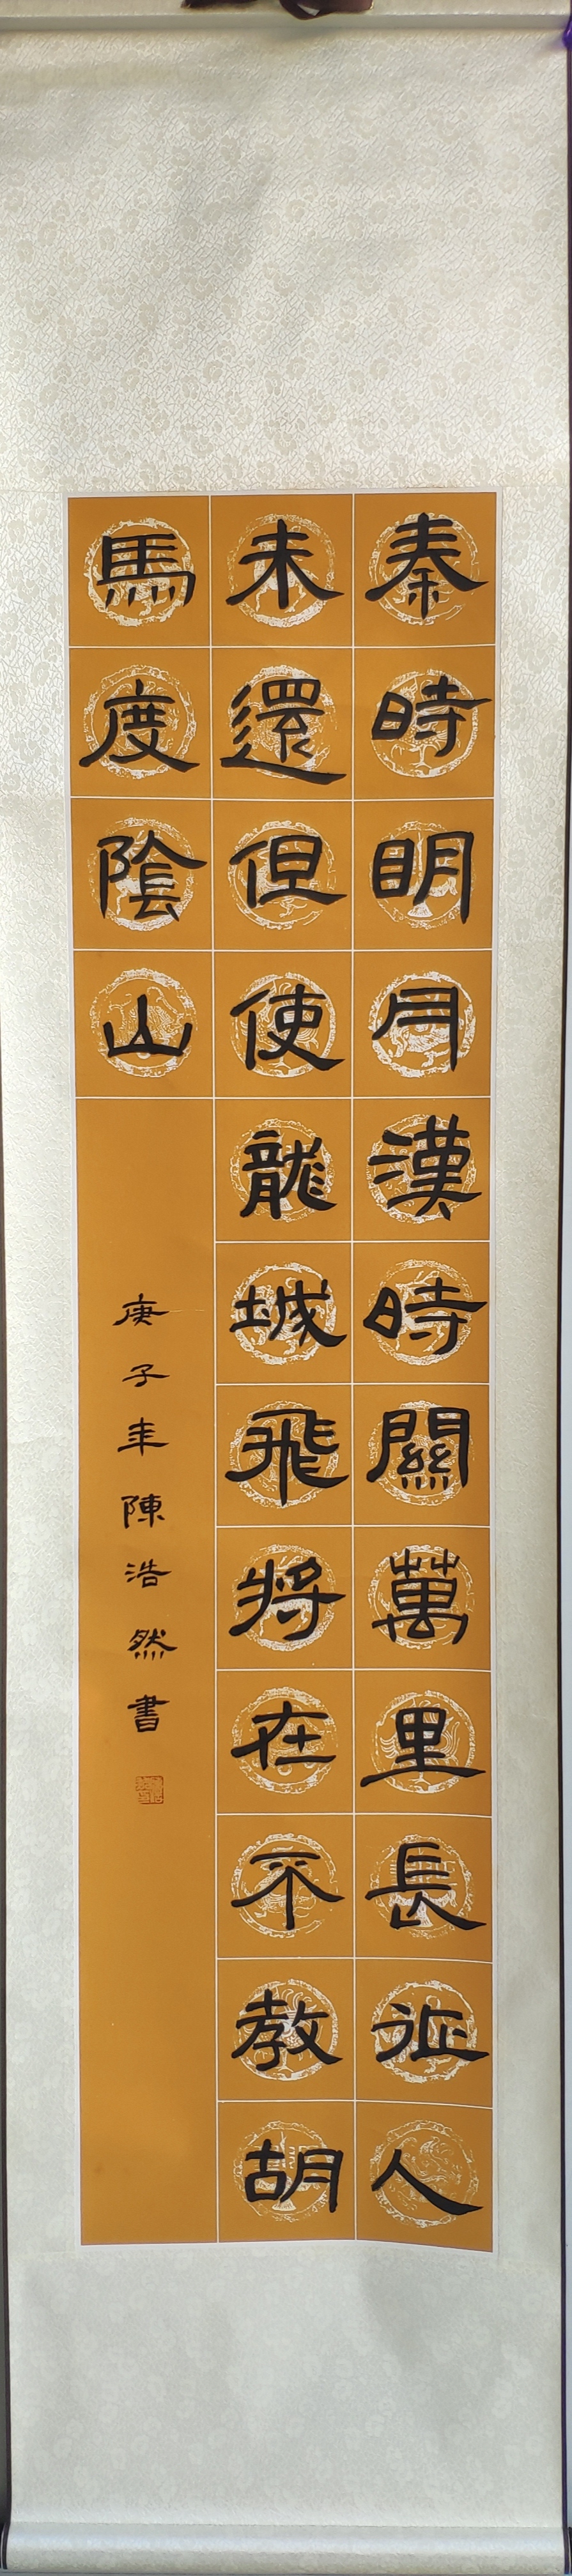 秦時明月漢時關萬里長征人
未還但使龍城飛將在不教胡
馬度陰山
庚子年陳浩然書